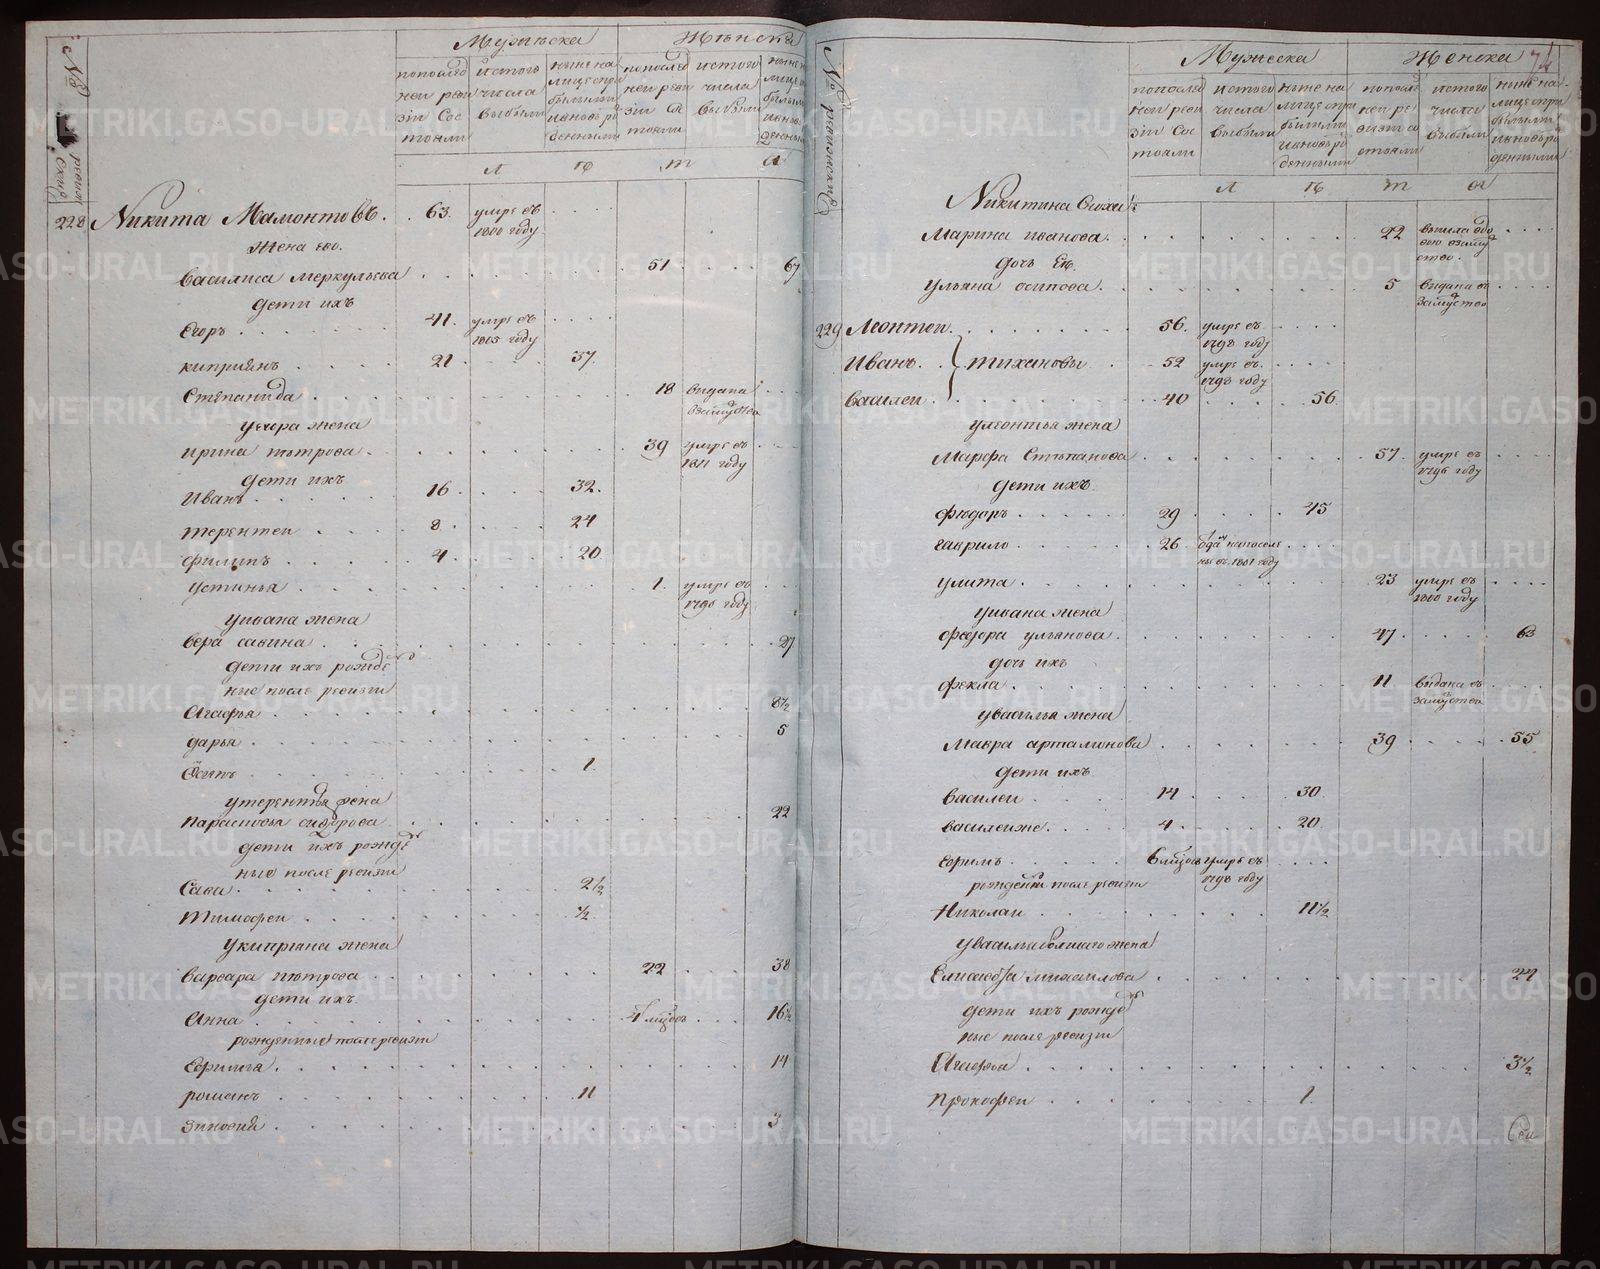 № ревизской
Мужеска
Женска
попослед ней реви зiи Сос тояли
истого числа выбыли
ныне на лице спри былыми ивновь ро денными
попослед ней реви зiи со тояли
истого числа выбыли
ныне на лице спри былыми ивновь ро денными
Л Ѣ Т А
228 Никита Мамонтовъ. 63. умре въ 1800 году
Жена его.
Василиса Меркульева 51 67
дети ихъ
Егоръ 41. умре въ 1805 году
киприянъ 21 37.
Степанида 18 выдана взамуство
уегора жена
ирина петрова 39 умре въ 1811 году
дети ихъ
Иванъ 16 32.
терентеи 8 24
филипъ 4 20
устинья 1. умре въ 1796 году
уивана жена
вера савина 27
дети ихъ рожде
ные после ревизiи
Агафья 8½
дарья 5
Осипъ 1
утерентья жена
парасковья сидорова 22
дети ихъ рожде
ные после ревизiи
Сава 2½
Тимофеи ½
укипрiяна жена
варвара петрова 22 38
дети ихъ
Анна 4 мцовъ 16½
рожденные после ревизiи
Ефимья 14
романъ 11
зиновия 3
№ ревижскиѣ
Мужеска
Женска
74
попослед ней реви зiи Сос тояли
истого числа выбыли
ныне на лице спри былыми ивновь ро денными
попослед ней ре визiи со стояли
истого числа выбыли
ныне на лице спри былыми ивновь ро денными
Л Ѣ Т А
Никитина сноха
Марина иванова 22 вышла вдо вою взаму ство.
дочь Ея.
Ульяна осипова. 5 выдана въ замуство
229 Леонтеи 56. умре въ 1798 году
Иванъ. } тихановы 52 умре въ 1798 году
Василеи 40 56
улеонтья жена
Марфа Степанова 57. умре въ 1796 году
дети ихъ
Фюдоръ 29 45
гаврило 26 отдан напоселе ние въ 1801 году
улита 23 умре въ 1800 году
уивана жена
федора ульянова 47 63
дочь ихъ
фекла 11 выдана въ замуство
увасилья жена
Мавра артамонова 39 55
дети ихъ
василеи 14 30
василеиже 4 20
Ефимъ 6 мцовъ умре въ 1798 году
рожденыи после ревизiи
Николаи 11½
увасилья болшаго жена
Елисавета михаилова 27
дети ихъ рожде
ные после ревизiи
Агафья 3½
Прокофеи 1